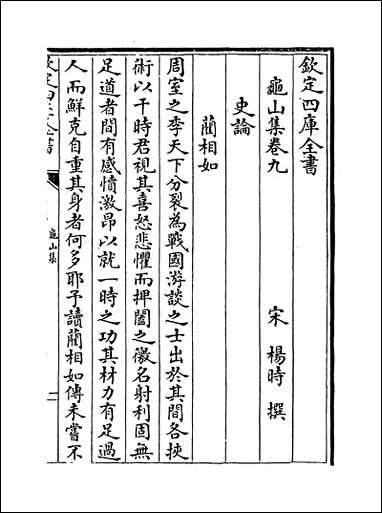 欽定四庫全書
龜山集卷九
宋 楊時 撰
史論
藺相如
周室之季天下分裂為戰國游談之士出於其間各挾
術以干時君視其喜怒悲懼而捭闔之徼名射利固無
足道者間有感憤激昂以就一時之功其材力有足過
人而鮮克自重其身者何多耶予讀藺相如傳未嘗不
欽定四庫全書
龜山集